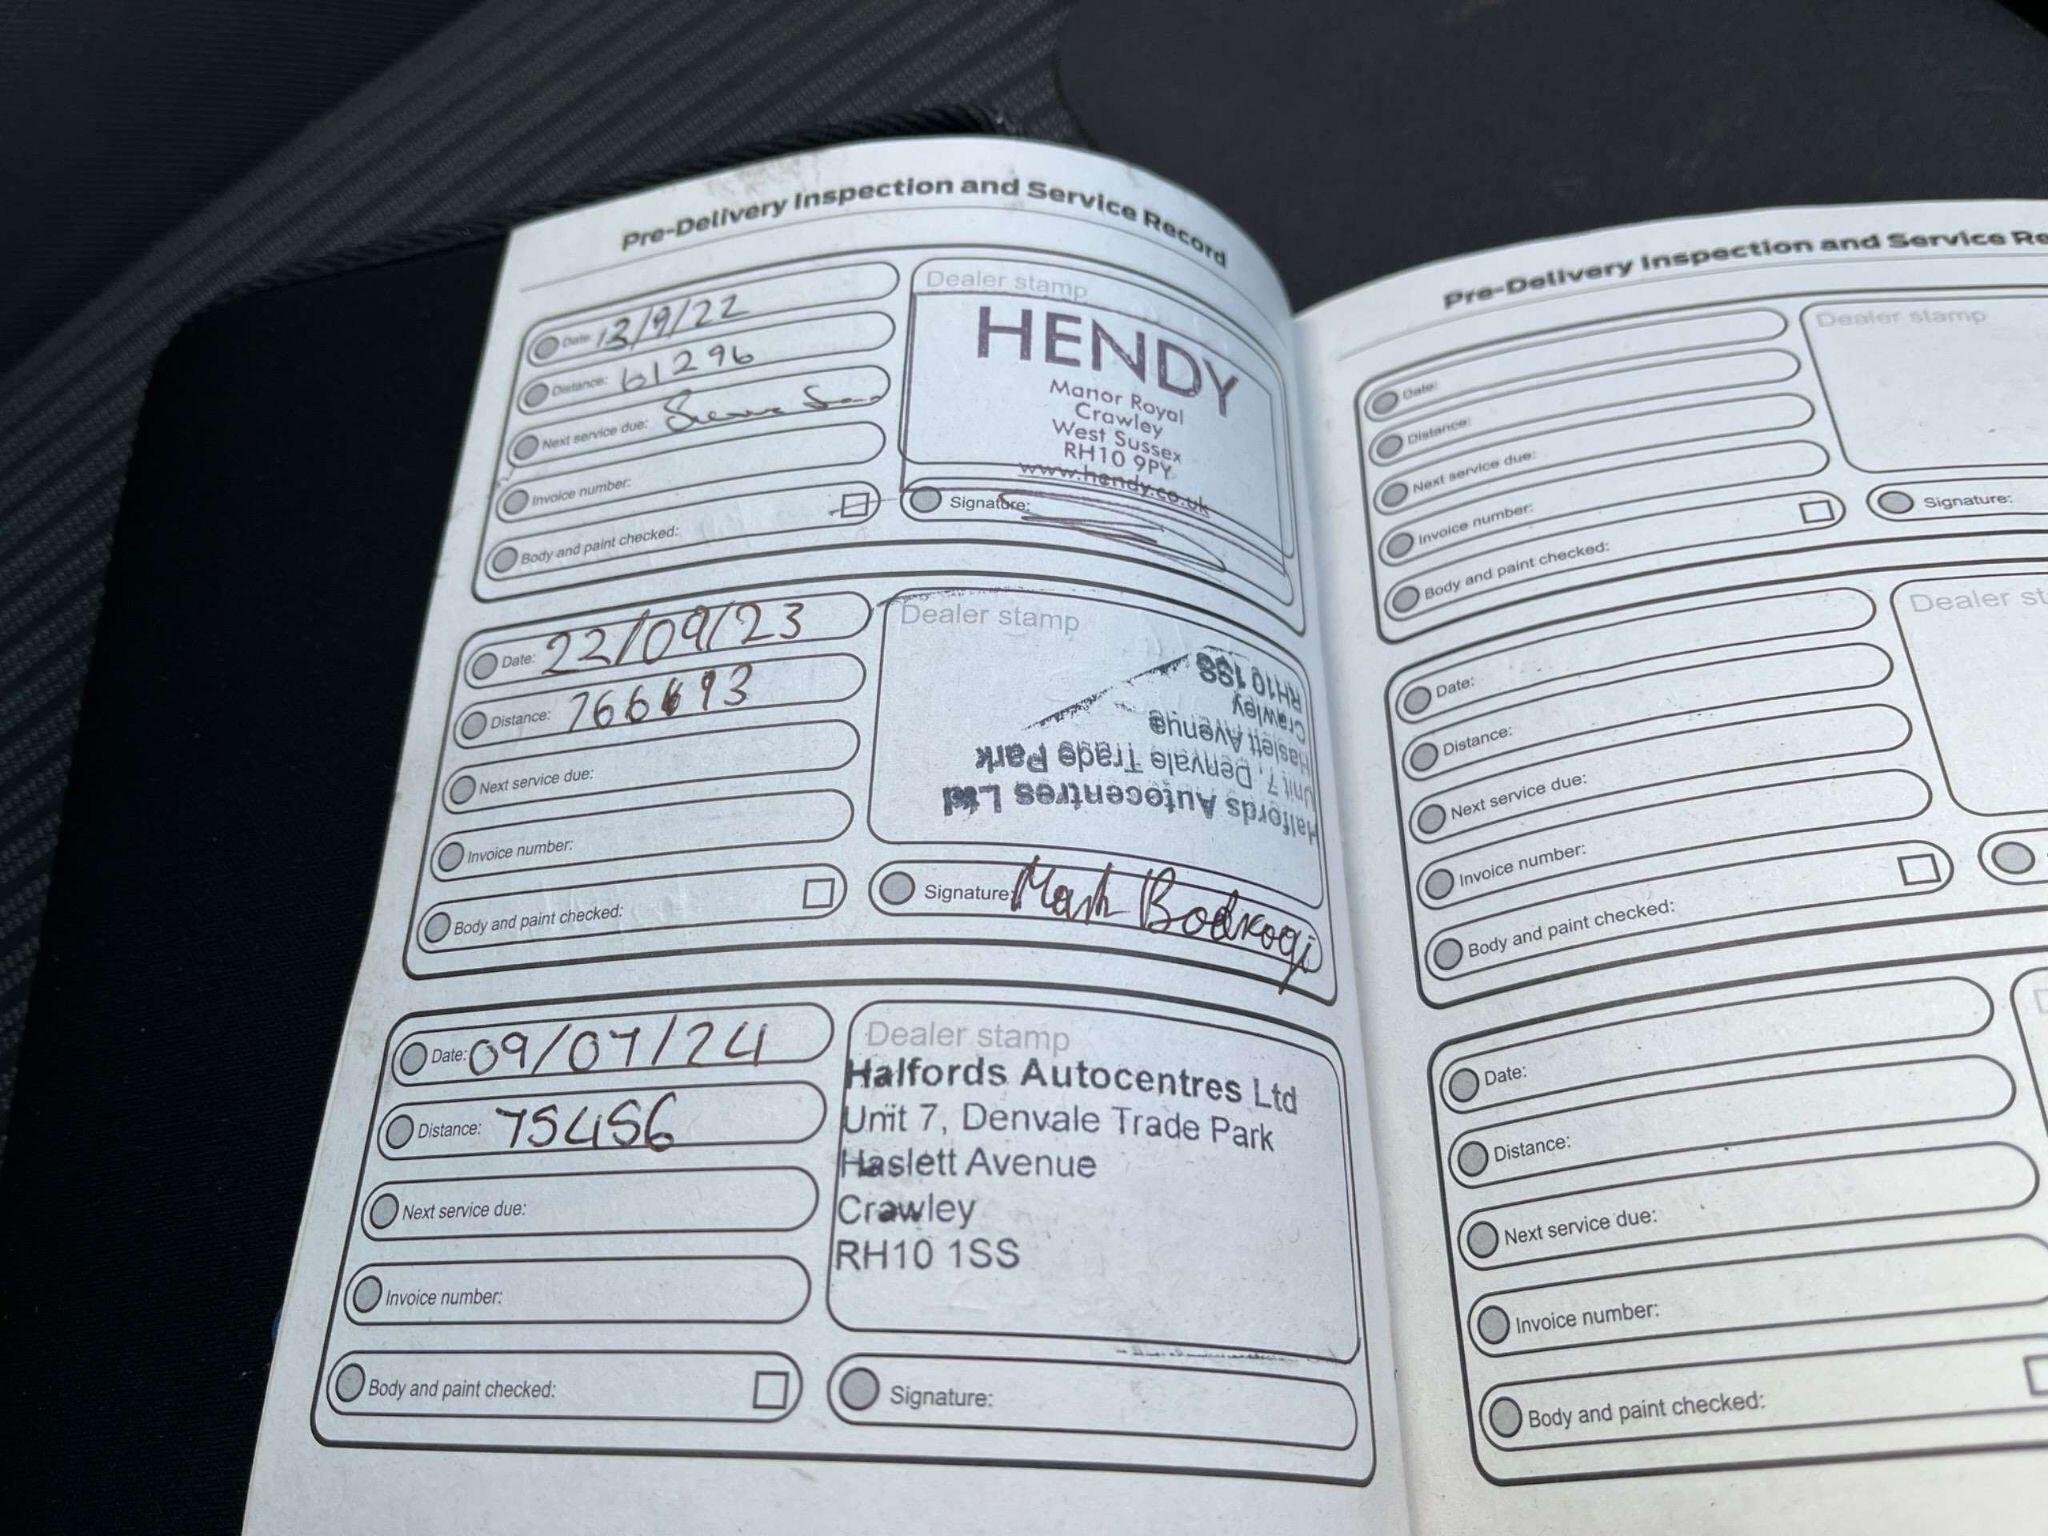 Pre-Delivery Inspection and Service Record
Date: 13/9/22
Distance: 61296
Next service due:
Invoice number:
Body and paint checked:
Dealer stamp
HENDY
Manor Royal
Crawley
West Sussex
RH10 9PY
www.hendy.co.uk
Signature:
Date: 22/09/23
Distance: 766693
Next service due:
Invoice number:
Body and paint checked:
Dealer stamp
Halfords Autocentres Ltd
Unit 7, Denvale Trade Park
Haslett Avenue
Crawley
RH10 1SS
Signature: Mark Bodrogi
Date: 09/07/24
Distance: 75456
Next service due:
Invoice number:
Body and paint checked:
Dealer stamp
Halfords Autocentres Ltd
Unit 7, Denvale Trade Park
Haslett Avenue
Crawley
RH10 1SS
Signature:
Pre-Delivery Inspection and Service Re
Date:
Distance:
Next service due:
Invoice number:
Body and paint checked:
Dealer stamp
Signature:
Date:
Distance:
Next service due:
Invoice number:
Body and paint checked:
Dealer st
Date:
Distance:
Next service due:
Invoice number:
Body and paint checked: